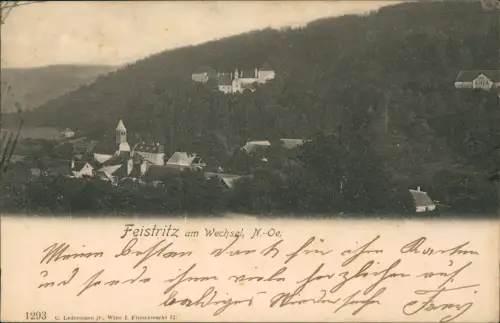 Feistritz am Wechsel, N.-Oe.
Meinen besten Dank für Ihre Karten
und seien Ihnen viele herzlich auf
baldiges Wiedersehen Fany
1293 C. Ledermann jr., Wien I. Fleischmarkt 12.